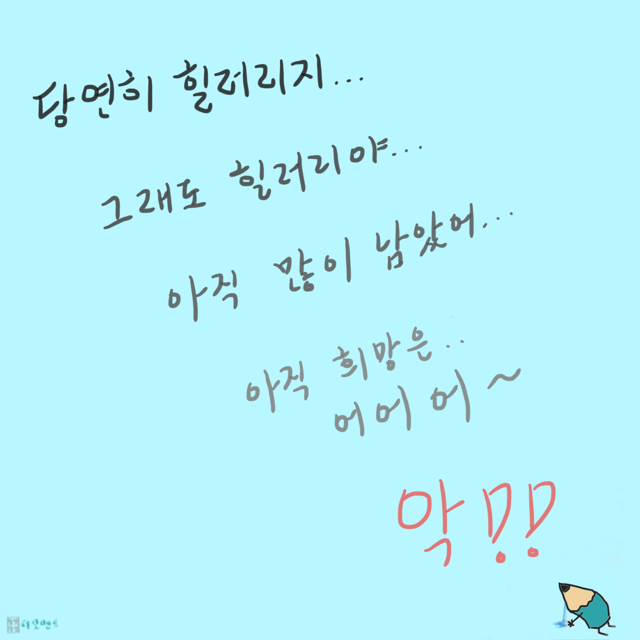 당연히 힐러리지...
그래도 힐러리야...
아직 많이 남았어...
아직 희망은..
어어 어~
악!!